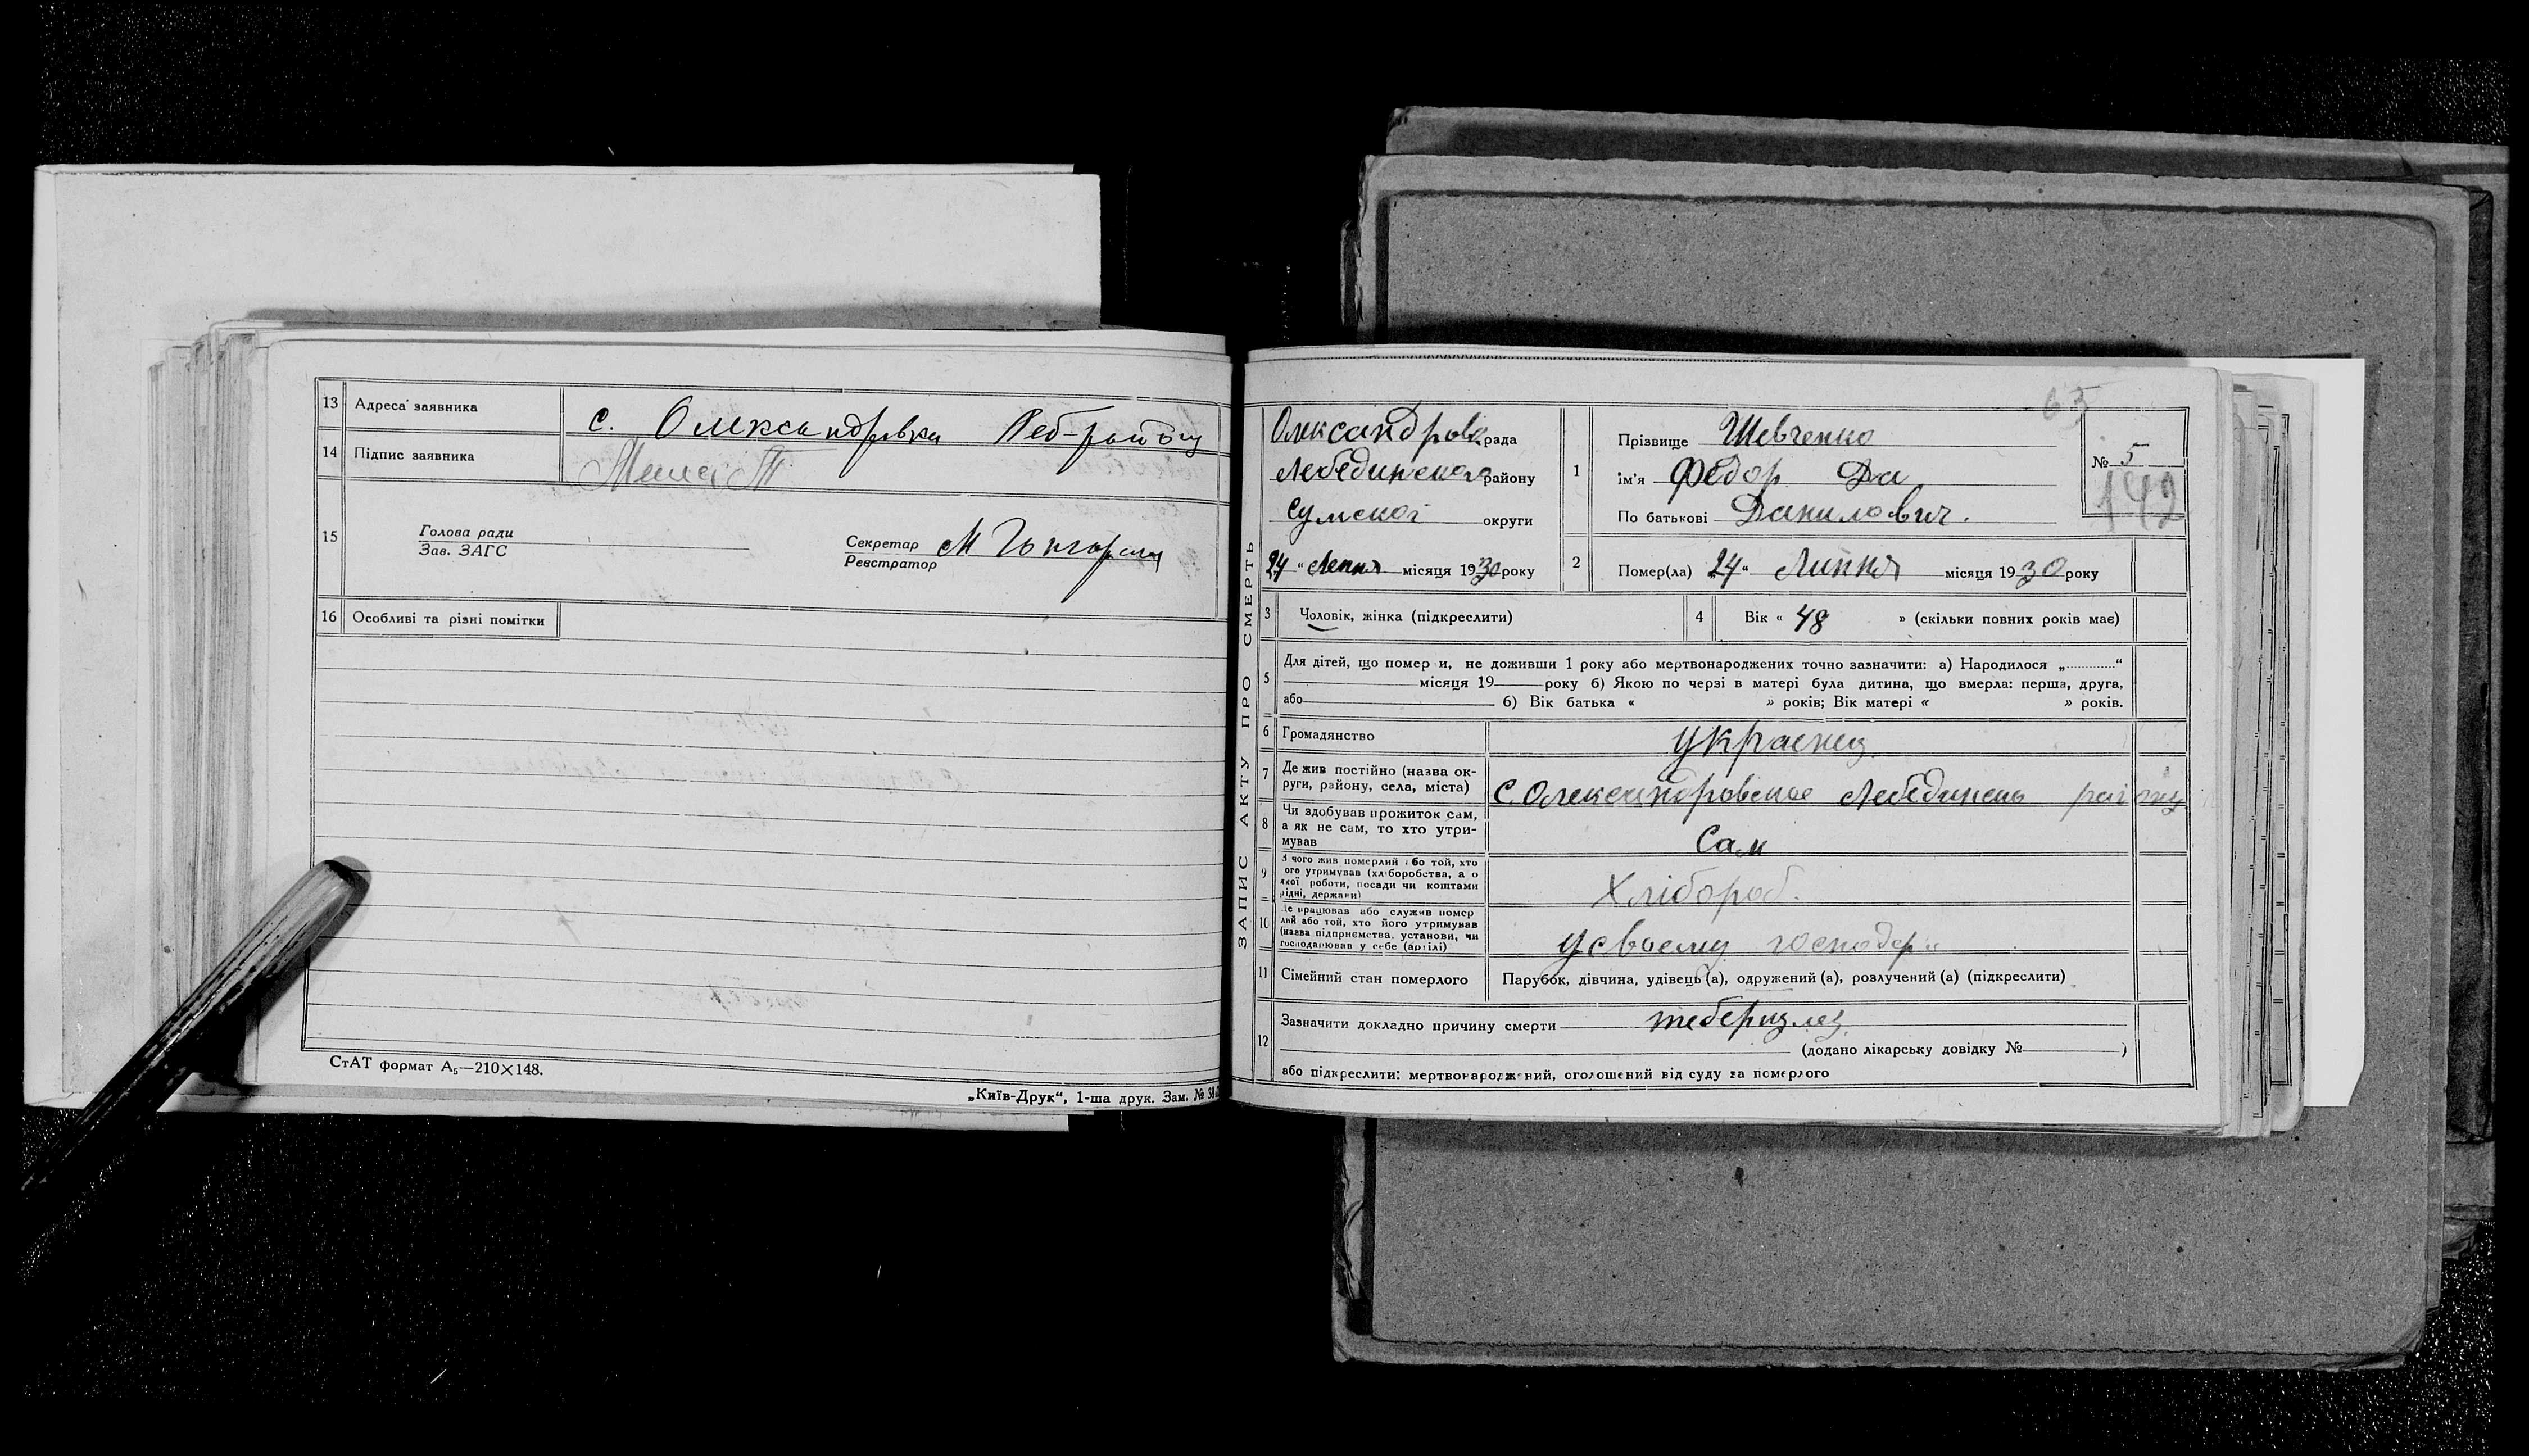 13 Адреса заявника с. Олександровка Леб-району
14 Підпис заявника
15 Голова ради
Зав. ЗАГС
Секретар М
Реєстратор
16 Особливі та різні помітки
СтАТ формат А₅—210×148.
„Київ-Друк“, 1-ша друк. Зам. №
ЗАПИС АКТУ ПРО СМЕРТЬ
63
Олександровс рада
Лебединского району
Сумскої округи
24 “ Липня місяця 1930 року
1 Прізвище Шевченко
ім'я Федор Да
По батькові Данилович.
№ 5
142
2 Помер(ла) 24 “ Липня місяця 1930 року
3 Чоловік, жінка (підкреслити)
4 Вік « 48 » (скільки повних років має)
5 Для дітей, що помер и, не доживши 1 року або мертвонароджених точно зазначити: а) Народилося „............“
місяця 19 року б) Якою по черзі в матері була дитина, що вмерла: перша, друга,
або б) Вік батька « » років; Вік матері « » років.
6 Громадянство украенец
7 Де жив постійно (назва ок-
руги, району, села, міста) С Олександровское Лебединськ району
8 Чи здобував прожиток сам,
а як не сам, то хто утри-
мував Сам
9 З чого жив померлий або той, хто
ого утримував (хліборобства, а о
якої роботи, посади чи коштами
рідні, держави) Хлібороб.
10 Де працював або служив помер
лий або той, хто його утримував
(назва підприємства, установи, чи
господарював у себе (артілі) усвоему господар
11 Сімейний стан померлого Парубок, дівчина, удівець (а), одружений (а), розлучений (а) (підкреслити)
12 Зазначити докладно причину смерти теберкулез
(додано лікарську довідку № )
або підкреслити: мертвонароджений, оголошений від суду за померлого